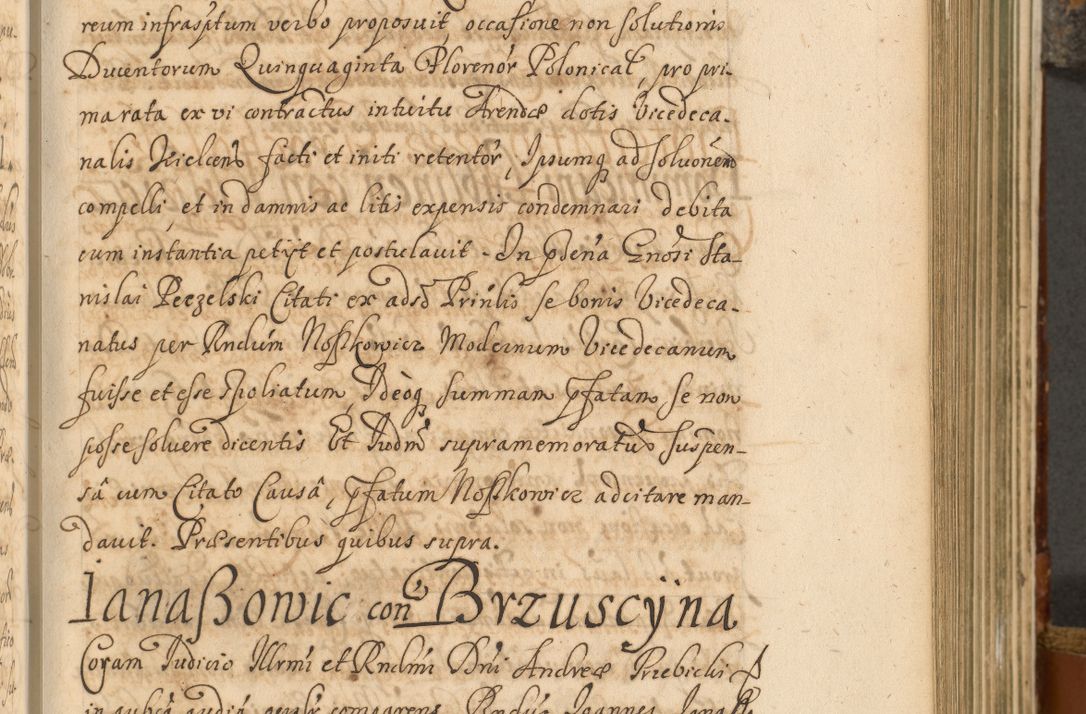 reum infrasptum verbo proposuit, occasione non solutionis
Ducentorum Quinquaginta Florenor Polonical, pro pri-
ma rata ex vi contractus intuitu Arendæ dotis Vicedeca-
nalis Kielcens facti et initi retentor, Ipsumq ad solvonem
compelli, et in damnis ac litis expensis condemnari debita
cum instantia petijt et postulavit. In pdena Gnosi Sta-
nislai Peczelski Citati ex adso Prinlis se bonis Vicedeca-
natus per Rndum Noskowicz Modernum Vicedecanum
fuisse et esse spoliatum, Ideoq summam pfatam se non
posse solvere dicentis Et Iudm supramemoratus suspen-
sâ cum Citato Causâ, pfatum Noskowicz adcitare man-
davit. Præsentibus quibus supra.
Ianaßowic con Brzuscÿna
Coram Iudicio Illrmi et Rndmi Dni Andreæ Trzebicki
in aubca audia comparens Rndus Joannes